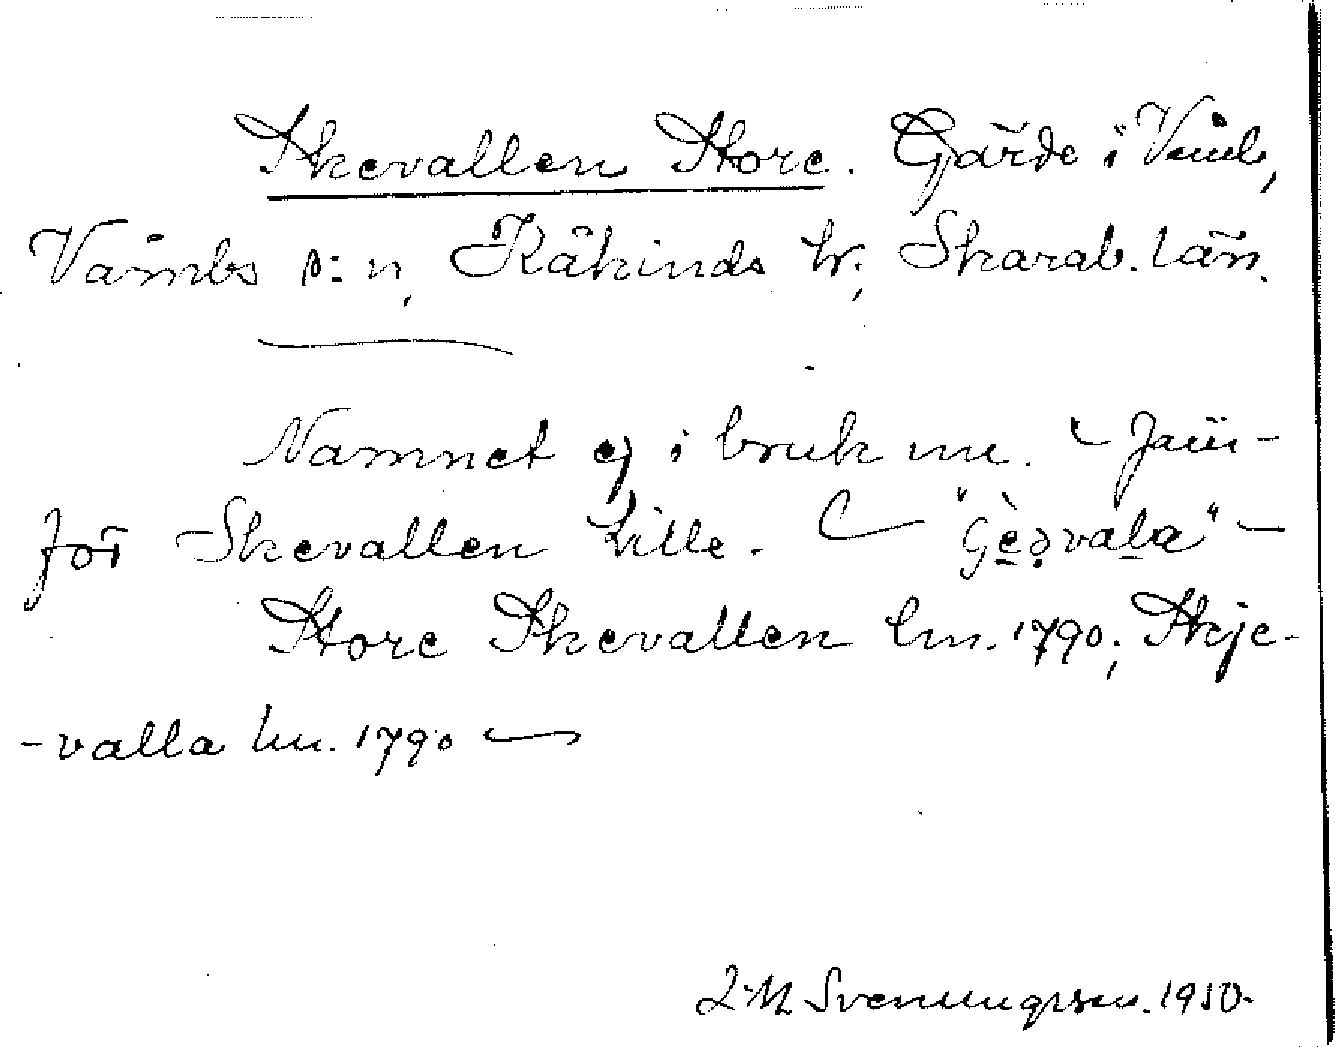 Skevallen Store. Gärde i Våmb,
Våmbs s:n, Kåkinds hr, Skarab. län.
Namnet ej i bruk nu. – Jäm-
för Skevallen Lille. – "Gèǝvaḷa" –
Store Skevallen hn. 1790; Skje-
-valla hn. 1790 –
Svenungsson. 1910.